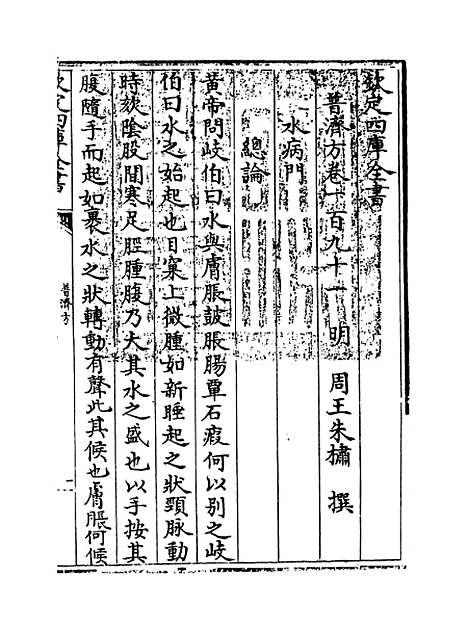 欽定四庫全書
普濟方卷一百九十一 明 周王朱橚 撰
水病門
總論
黄帝問岐伯曰水與膚脹皷脹腸覃石瘕何以别之岐
伯曰水之始起也目窠上微腫如新睡起之狀頸脉動
時欬陰股間寒足脛腫腹乃大其水之盛也以手按其
腹隨手而起如裹水之狀轉動有聲此其候也膚脹何候
欽定四庫全書
普濟方